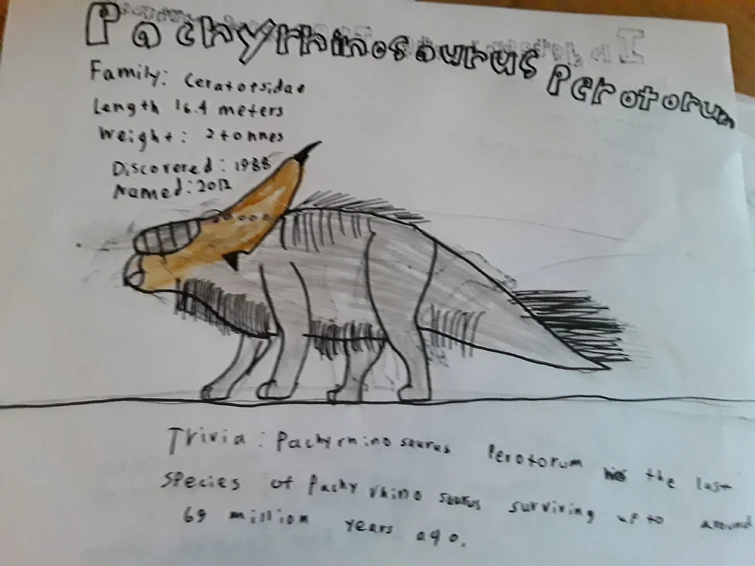 Pachyrhinosaurus Perotorum
Family: Ceratotsidae
Length 16.4 meters
Weight: 2 tonnes
Discovered: 1988
Named: 2012
Trivia: Pachyrhinosaurus Perotorum the last
species of Pachyrhinosaurus surviving up to around
69 million years ago.